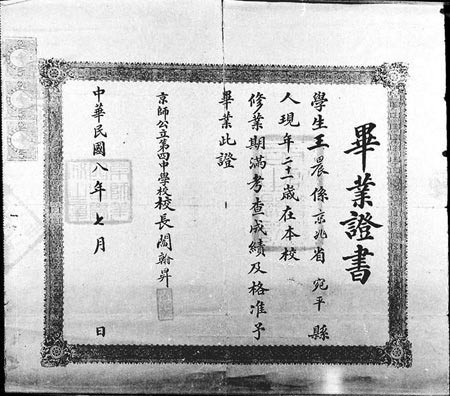 畢業證書
學生王晨係京兆省宛平縣
人現年二十一歲在本校
修業期滿考查成績及格准予
畢業此證
京師公立第四中學校校長閻翰昇
中華民國八年七月 日